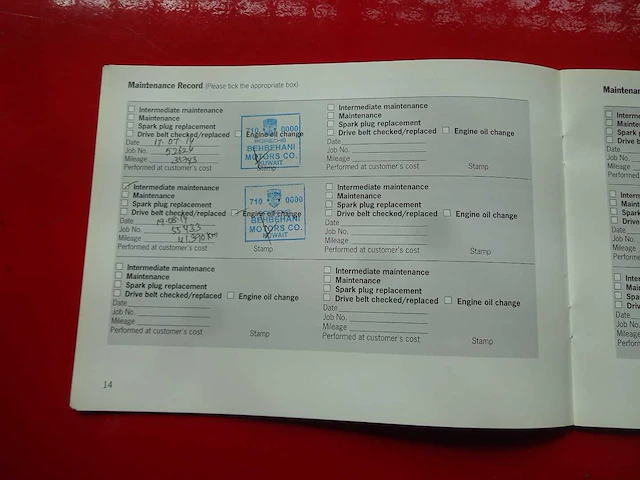 Maintenance Record (Please tick the appropriate box)
Intermediate maintenance
Maintenance
Spark plug replacement
Drive belt checked/replaced Engine oil change
Date 17-07-14
Job No. 52626
Mileage 35743
Performed at customer's cost Stamp
710 0000
PORSCHE
BEHBEHANI
MOTORS CO.
KUWAIT
Intermediate maintenance
Maintenance
Spark plug replacement
Drive belt checked/replaced Engine oil change
Date
Job No.
Mileage
Performed at customer's cost Stamp
Intermediate maintenance
Maintenance
Spark plug replacement
Drive belt checked/replaced Engine oil change
Date
Job No. 55433
Mileage 41,390 km
Performed at customer's cost Stamp
710 0000
BEHBEHANI
MOTORS CO.
KUWAIT
Intermediate maintenance
Maintenance
Spark plug replacement
Drive belt checked/replaced Engine oil change
Date
Job No.
Mileage
Performed at customer's cost Stamp
Intermediate maintenance
Maintenance
Spark plug replacement
Drive belt checked/replaced Engine oil change
Date
Job No.
Mileage
Performed at customer's cost Stamp
Intermediate maintenance
Maintenance
Spark plug replacement
Drive belt checked/replaced Engine oil change
Date
Job No.
Mileage
Performed at customer's cost Stamp
14